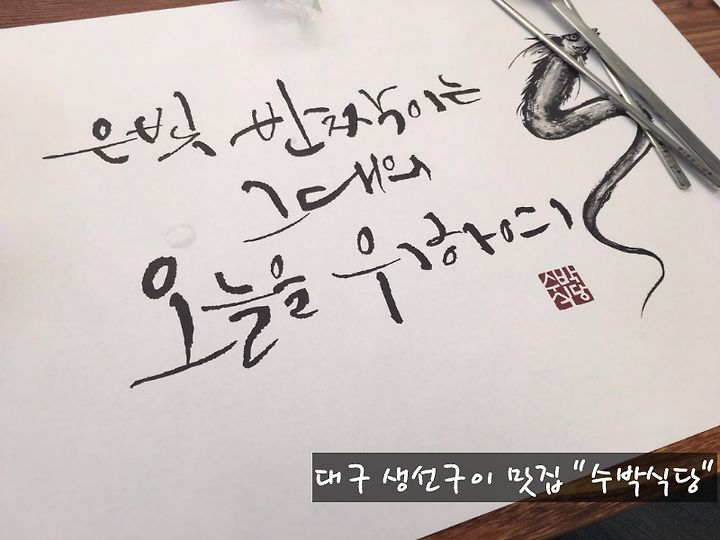 은빛 반짝이는
그대의
오늘을 위하여
수박
식당
대구 생선구이 맛집 "수박식당"